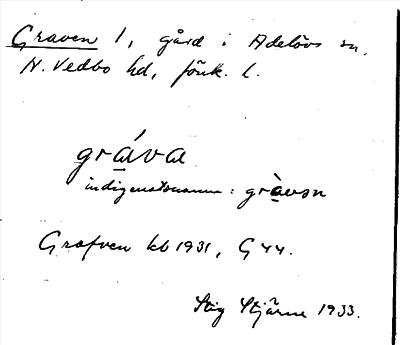 Graven 1, gård i Adelövs sn,
N. Vedbo hd, Jönk. l.
gráva
indigenatsnamn: gràvən
Grafven kb 1931, G 44.
Stig Stjärne 1933.